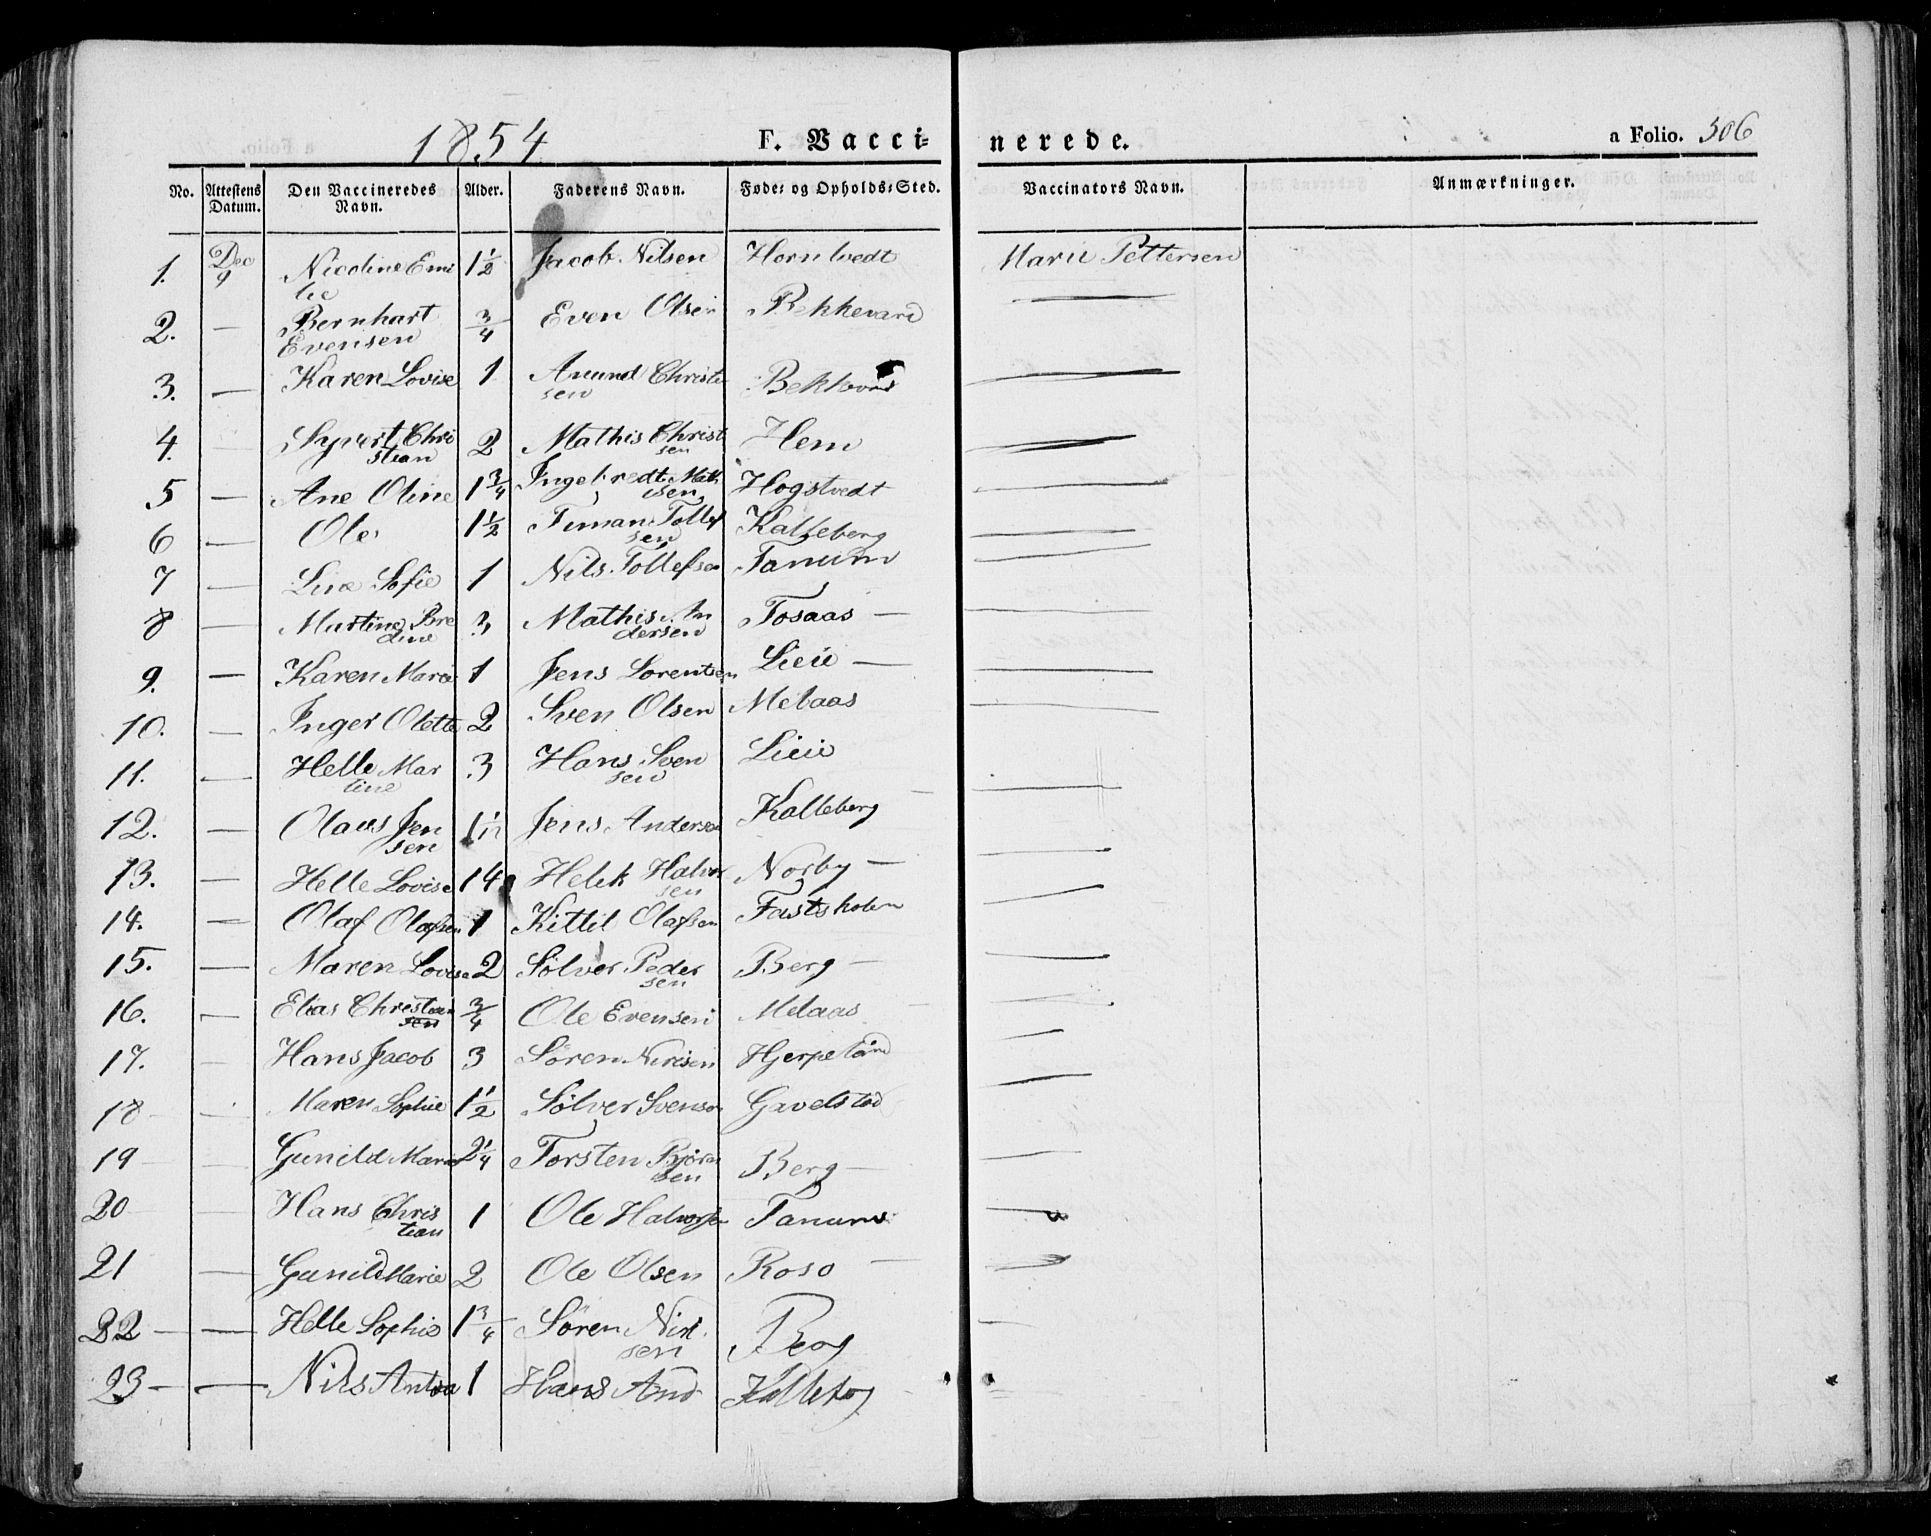 1854 F. Vacci= nerede. a Folio. 306
No. Attestens Datum. Den Vaccineredes Navn. Alder. Faderens Navn. Føde= og Opholds=Sted. Vaccinators Navn. Anmærkninger.
1. Dec 9 Nicoline Emi 1½ Jacob Nilsen Horntvedt Marie Pettersen
lie
2. — Bernhart ¾ Even Olsen Bekkevard —
Evensen
3. — Karen Lovise 1 Anund Christen Bekkevard —
sen
4. — Syvert Chri 2 Mathis Christ Hem —
stian sen
5 — Ane Oline 1¾ Ingebredt Math Hogstvedt —
isen
6 — Ole 1½ Timan Tollef Kalleberg —
sen
7 — Line Sofie 1 Nils Tollefsen Tanum —
8 — Martine Bre 3 Mathis An Tosaas — —
dine dersen
9. — Karen Marie 1 Jens Lorentsen Lieie — —
10. — Inger Olette 2 Sven Olsen Melaas —
11. — Helle Mar 3 Hans Sven Lieie —
tine sen
12. — Olaus Jen Jens Andersen Kalleberg — —
sen
13. — Helle Lovise 14 Halvor Norby — —
sen
14. — Olaf Olafsen 1 Kittil Olafsen —
15. — Maren Lovise 2 Sølver Peder Berg — —
sen
16. — Elias Christian ¾ Ole Evensen Melaas —
sen
17. — Hans Jacob 3 Søren Nirisen Hjerpetan —
18 — Maren Sophie 1½ Sølver Svensen Gavelstad —
19 — Gunild Marie 2¼ Torsten Bjørn Berg — —
sen
20 — Hans Chris 1 Ole Halvorsen Tanum —
tian
21 — Gunild Marie 2 Ole Olsen Roso — —
22 — — Helle Sophie 1¾ Søren Niri Berg —
sen
23 — — Nils Anton 1 Hans And Kalleberg